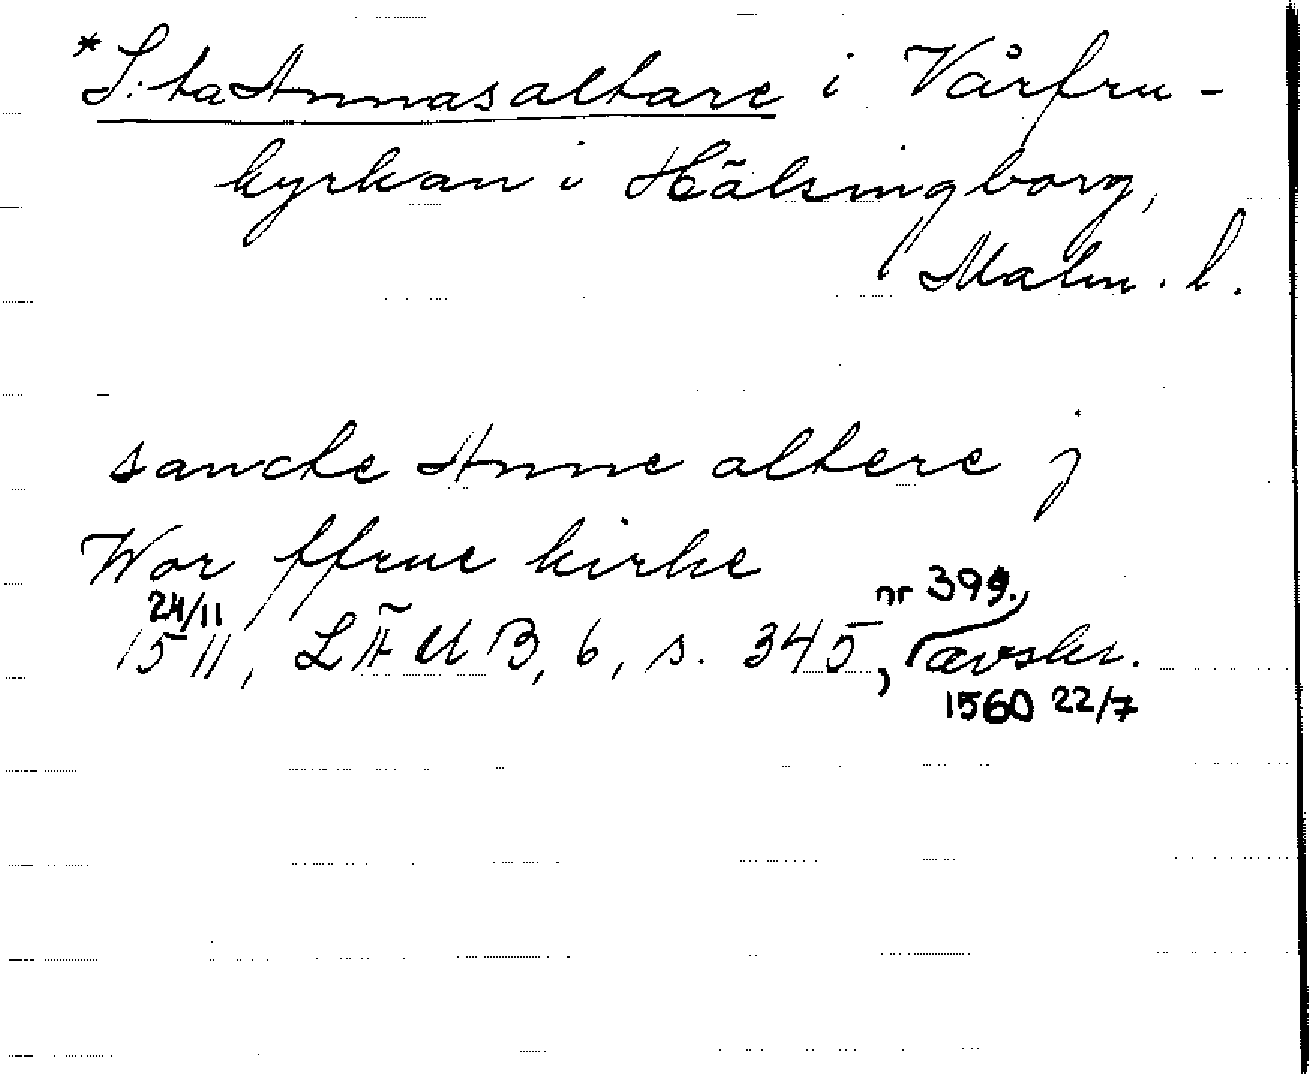 *S:ta Annas altare i Vårfru-
kyrkan i Hälsingborg,
Malm. l.
sancte Anne altere j
Wor ffrue kirke
24/11 nr 399.
1511, LÄUB, 6, s. 345, avskr.
1560 22/7